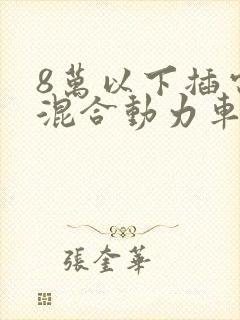 8萬以下插
混合動力車
張奎華